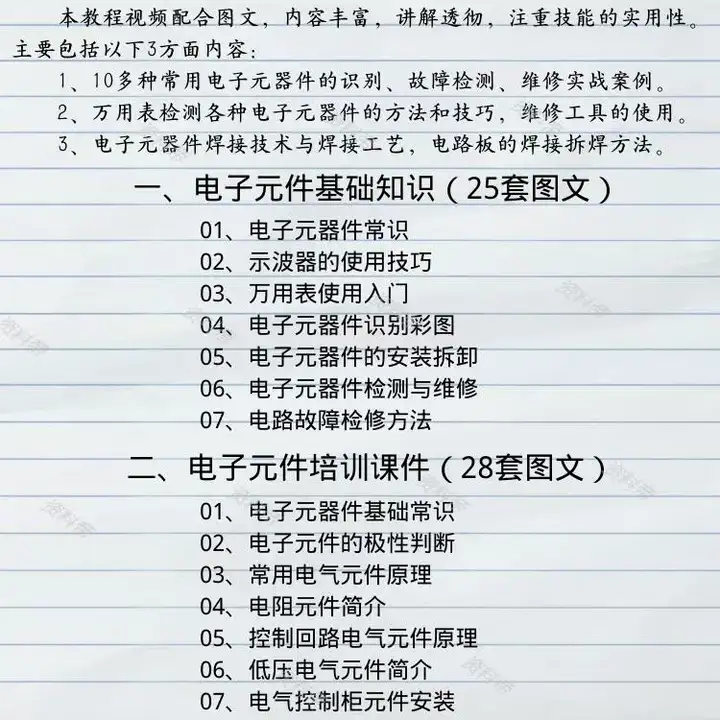 本教程视频配合图文，内容丰富，讲解透彻，注重技能的实用性。
主要包括以下3方面内容：
1、10多种常用电子元器件的识别、故障检测、维修实战案例。
2、万用表检测各种电子元器件的方法和技巧，维修工具的使用。
3、电子元器件焊接技术与焊接工艺，电路板的焊接拆焊方法。
一、电子元件基础知识（25套图文）
01、电子元器件常识
02、示波器的使用技巧
03、万用表使用入门
04、电子元器件识别彩图
05、电子元器件的安装拆卸
06、电子元器件检测与维修
07、电路故障检修方法
二、电子元件培训课件（28套图文）
01、电子元器件基础常识
02、电子元件的极性判断
03、常用电气元件原理
04、电阻元件简介
05、控制回路电气元件原理
06、低压电气元件简介
07、电气控制柜元件安装
资料帝